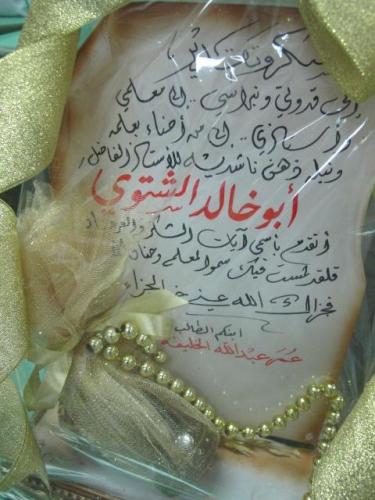 شكر وتقدير
إلى قدوتي ونبراسي .. إلى معلمي
وأستاذي .. إلى من أضاء بعلمه
ذهن ناشديه للأستاذ الفاضل
أبو خالد الشتوي
أتقدم بأسمى آيات الشكر والعرفان
فلقد لمست فيك سمو المعلم وحنان
فجزاك الله عني خير الجزاء
ابنكم الطالب
عمر عبدالله الخليفة